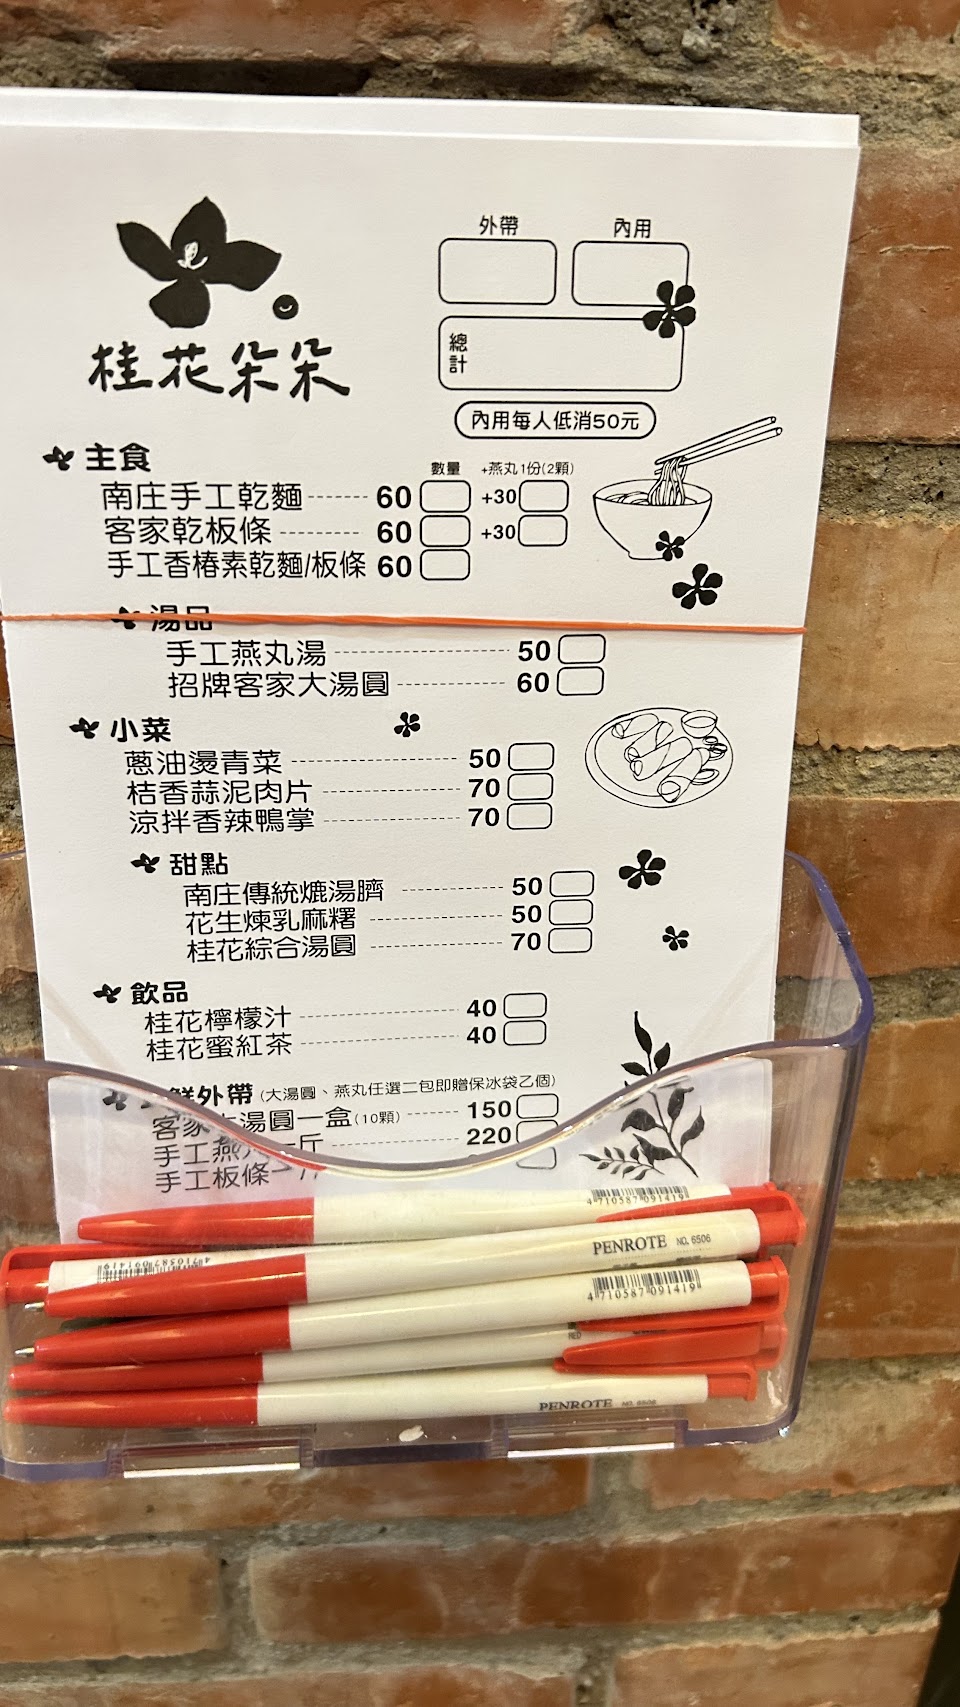 桂花朵朵
外帶 內用
總計
內用每人低消50元
主食 數量 +燕丸1份(2顆)
南庄手工乾麵 60 +30
客家乾板條 60 +30
手工香椿素乾麵/板條 60
湯品
手工燕丸湯 50
招牌客家大湯圓 60
小菜
蔥油燙青菜 50
桔香蒜泥肉片 70
涼拌香辣鴨掌 70
甜點
南庄傳統熝湯臍 50
花生煉乳麻糬 50
桂花綜合湯圓 70
飲品
桂花檸檬汁 40
桂花蜜紅茶 40
鮮外帶 (大湯圓、燕丸任選二包即贈保冰袋乙個)
客家大湯圓一盒(10顆) 150
手工燕丸一斤 220
手工板條一斤
4 710587 091419
PENROTE NO. 6506
4 710587 091419
4 710587 091419
RED
PENROTE NO. 6506